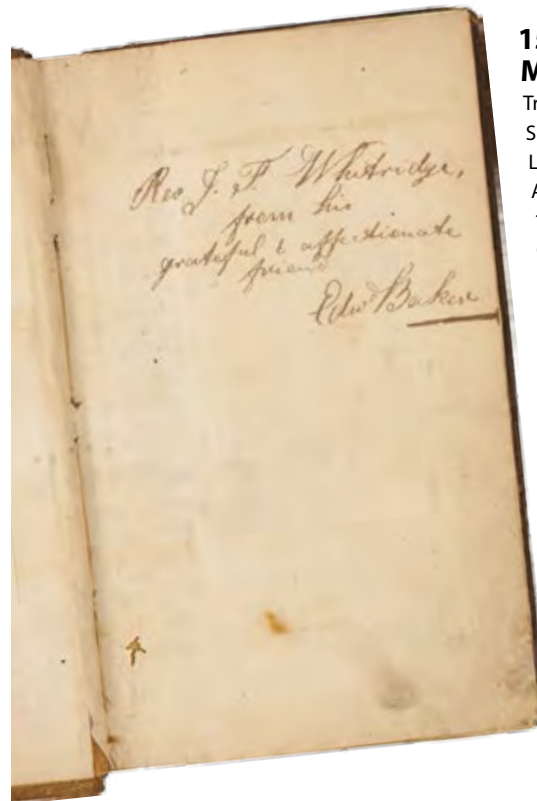 Rev J. F. Whitridge,
from his
grateful & affectionate
friend
Edwd Baker
15
M
Tr
S
L
A